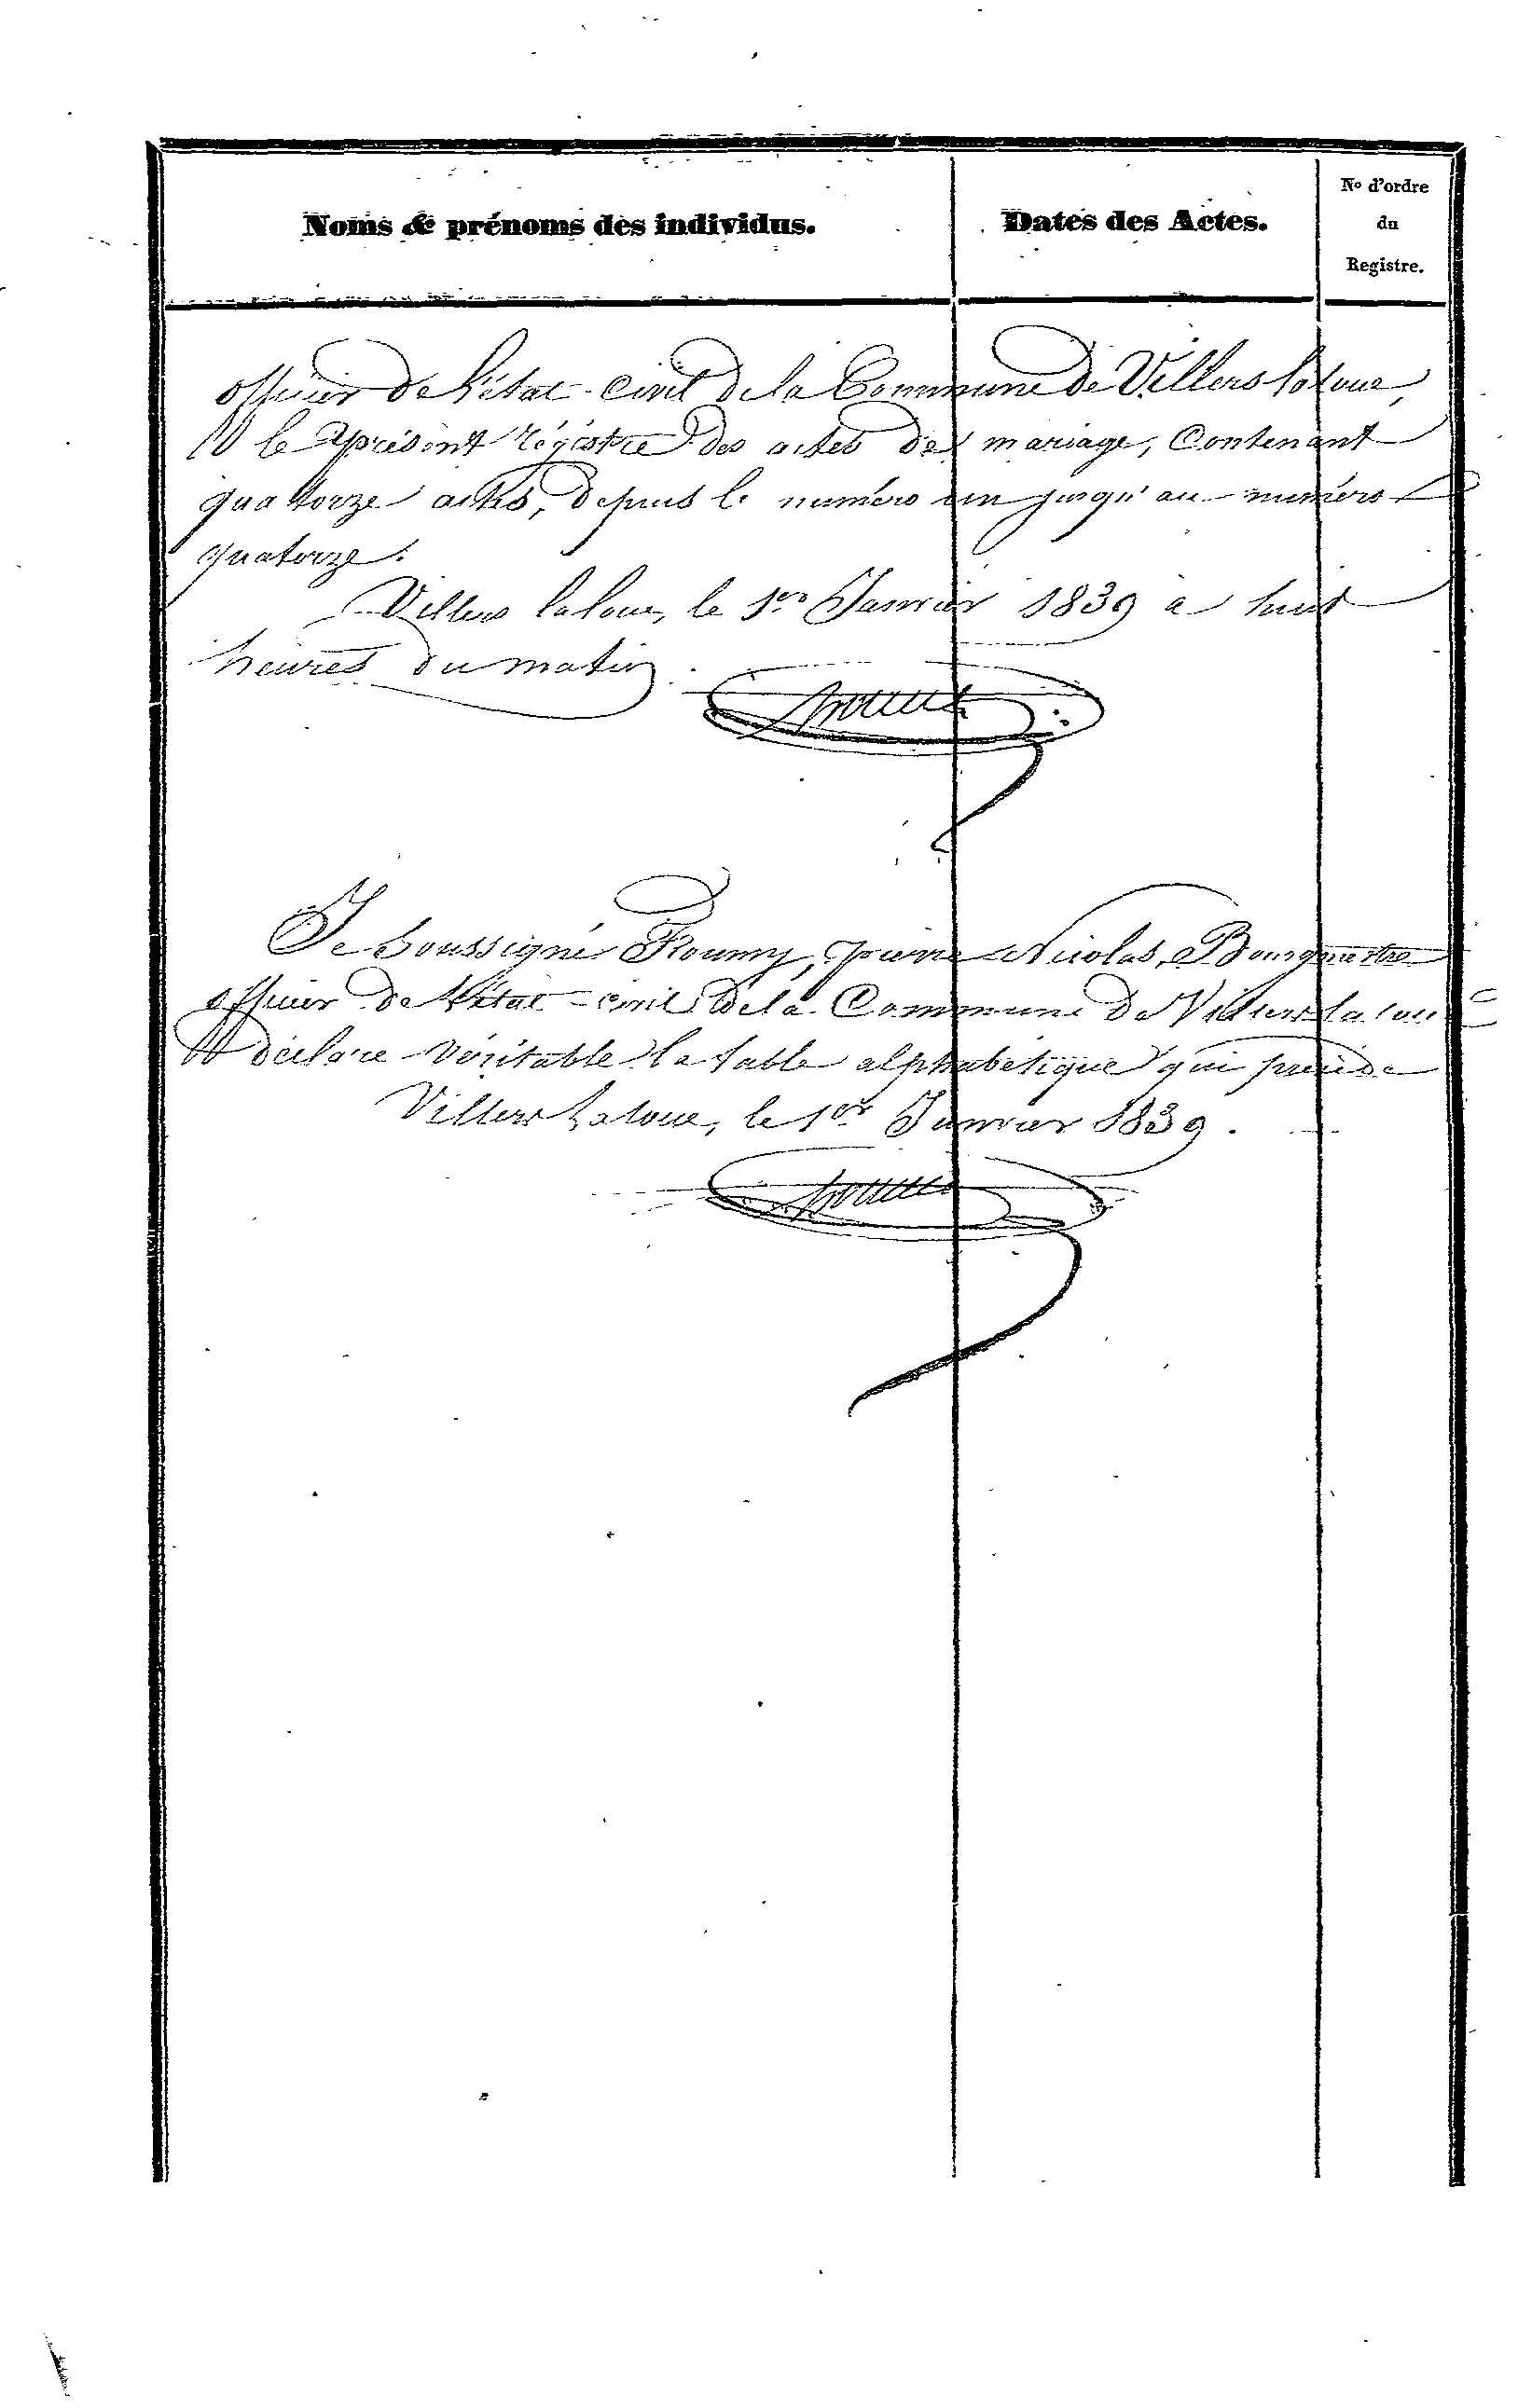 Noms & prénoms des individus.
Dates des Actes.
No d'ordre
du
Registre.
officier de l'état-civil de la Commune de Villers laloue,
le présent régistre des actes de mariage, Contenant
quattorze actes, depuis le numéro un jusqu'au numéro
quatorze.
Villers laloue, le 1er Janvier 1839 à huit
heures du matin.
Je soussigné pierre Nicolas, Bourgmestre
officier de l'état-civil de la Commune de Villers la loue
déclare véritable la table alphabétique qui précède
Villers Laloue, le 1er Janvier 1839.